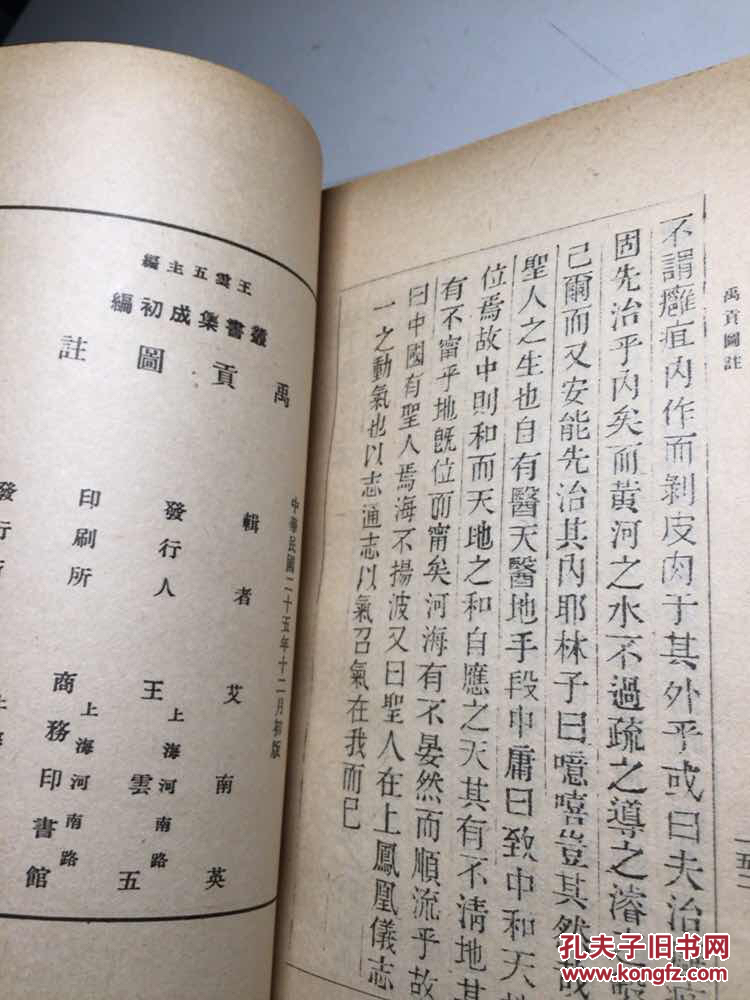 禹貢圖註
一五二
不謂癰疽內作而剝皮肉于其外乎或曰夫治
固先治乎內矣而黃河之水不過疏之導之濬之
己爾而又安能先治其內耶林子曰噫嘻豈其然哉
聖人之生也自有醫天醫地手段中庸曰致中和天地
位焉故中則和而天地之和自應之天其有不淸地其
有不甯乎地既位而甯矣河海有不晏然而順流乎故
曰中國有聖人焉海不揚波又曰聖人在上鳳凰儀志
一之動氣也以志通志以氣召氣在我而已
中華民國二十五年十二月初版
王雲五主編
叢書集成初編
禹貢圖註
輯者 艾南英
發行人 王雲五
上海河南路
印刷所 商務印書館
上海河南路
發行所
孔夫子旧书网
kongfz.com